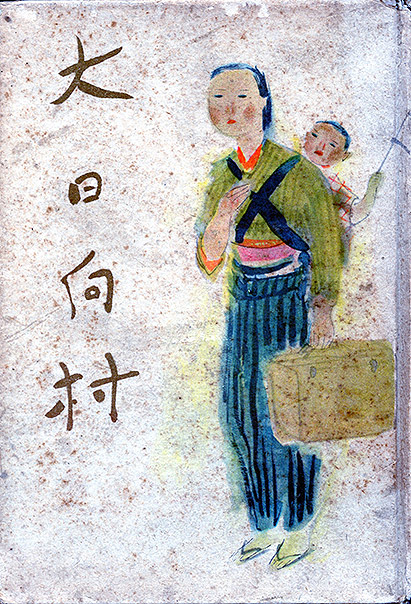 大日向村